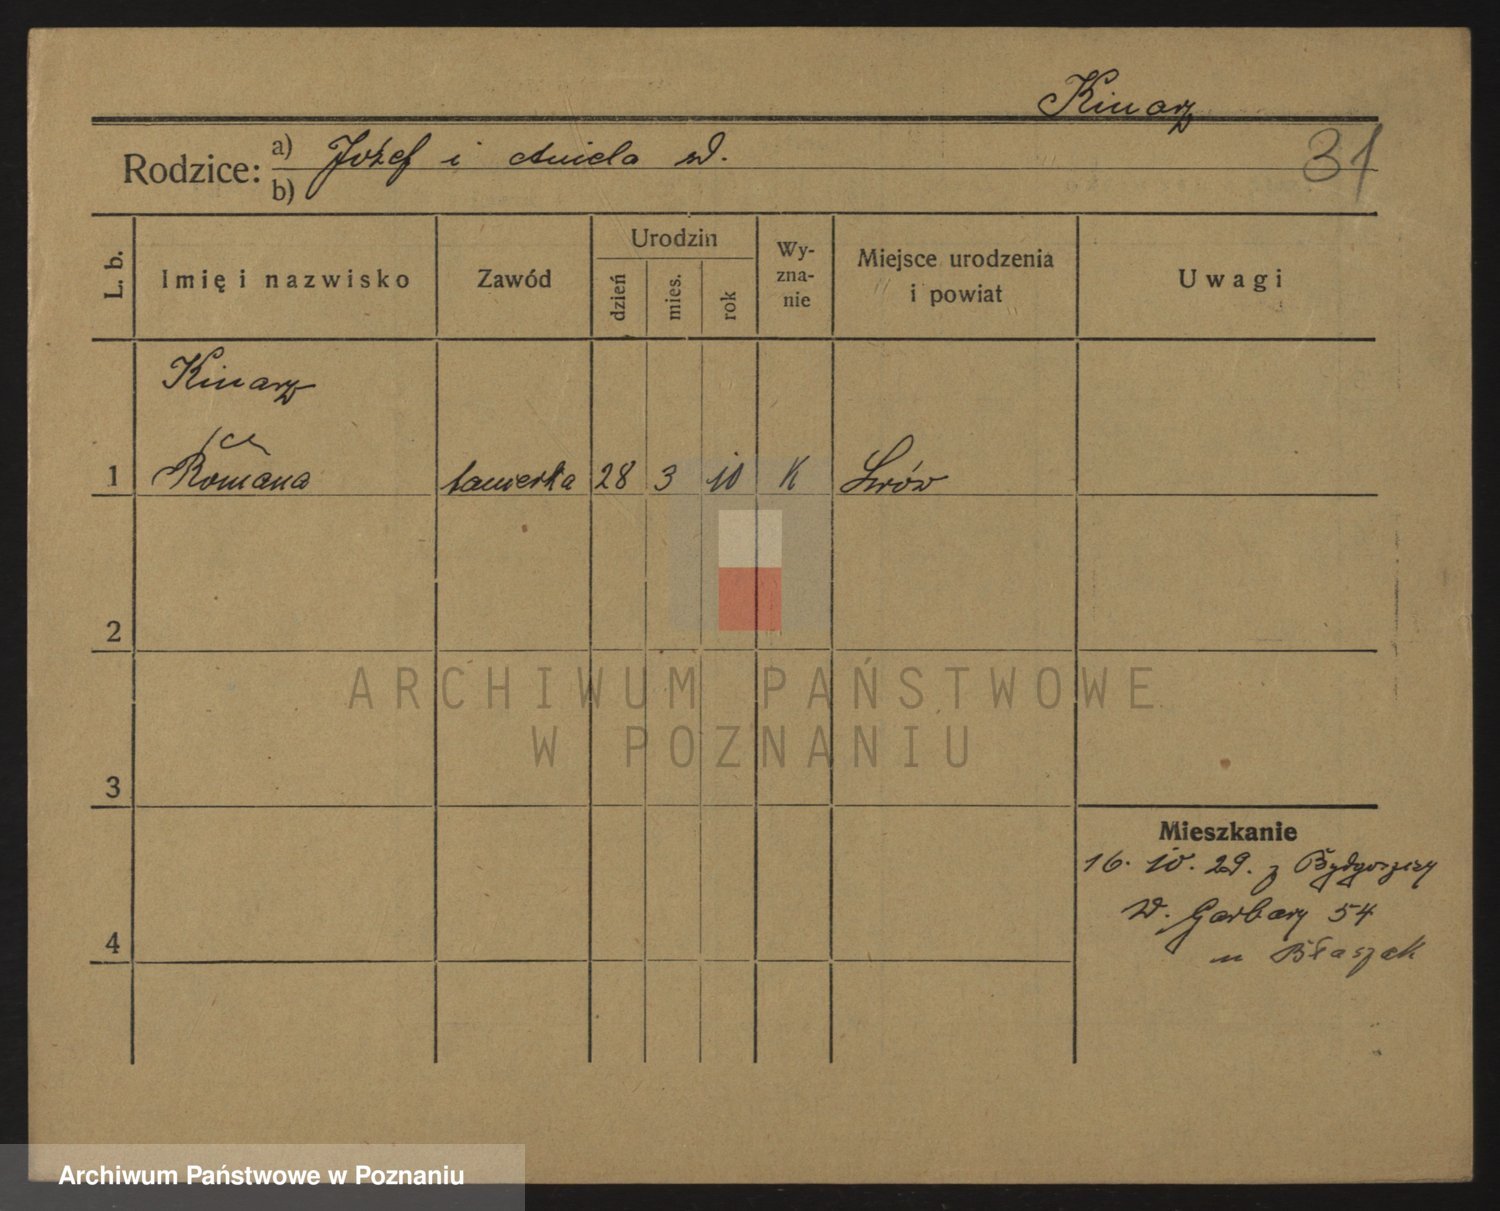 Kinarz
Rodzice: a) Józef i Aniela W.
b)
31
L. b.
Imię i nazwisko
Zawód
Urodzin
dzień
mies.
rok
Wy-
zna-
nie
Miejsce urodzenia
i powiat
Uwagi
Kinarz
1 Romana tancerka 28 3 10 K Lwów
2
3
4
Mieszkanie
16. 10. 29. z Bydgoszczy
W. Garbary 54
u Błaszak
ARCHIWUM PAŃSTWOWE
W POZNANIU
Archiwum Państwowe w Poznaniu